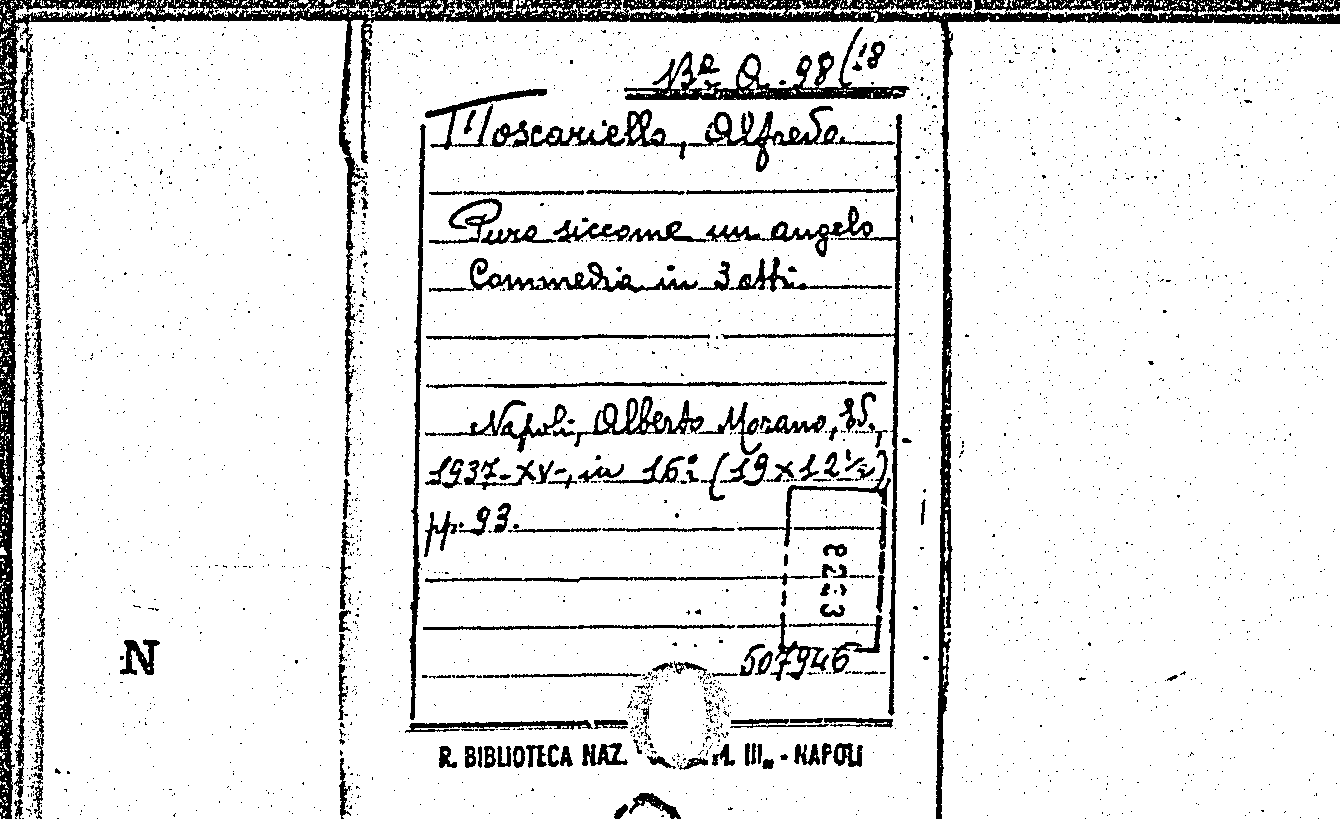 Bª Q. 98(18
Moscariello, Alfredo.
Puro siccome un angelo
Commedia in 3 atti.
Napoli, Alberto Morano, Ed.,
1937-XV-, in 16º (19 x 12½)
pp. 93.
507946
N
R. BIBLIOTECA NAZ. III„ - NAPOLI